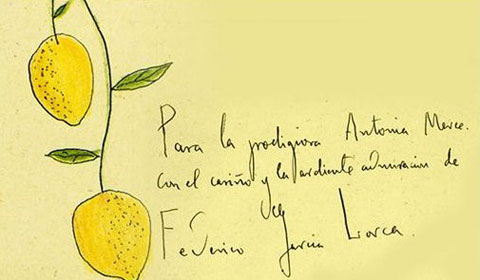 Para la prodigiosa Antonia Merce.
con el cariño y la ardiente admiracion de
Federico García Lorca.